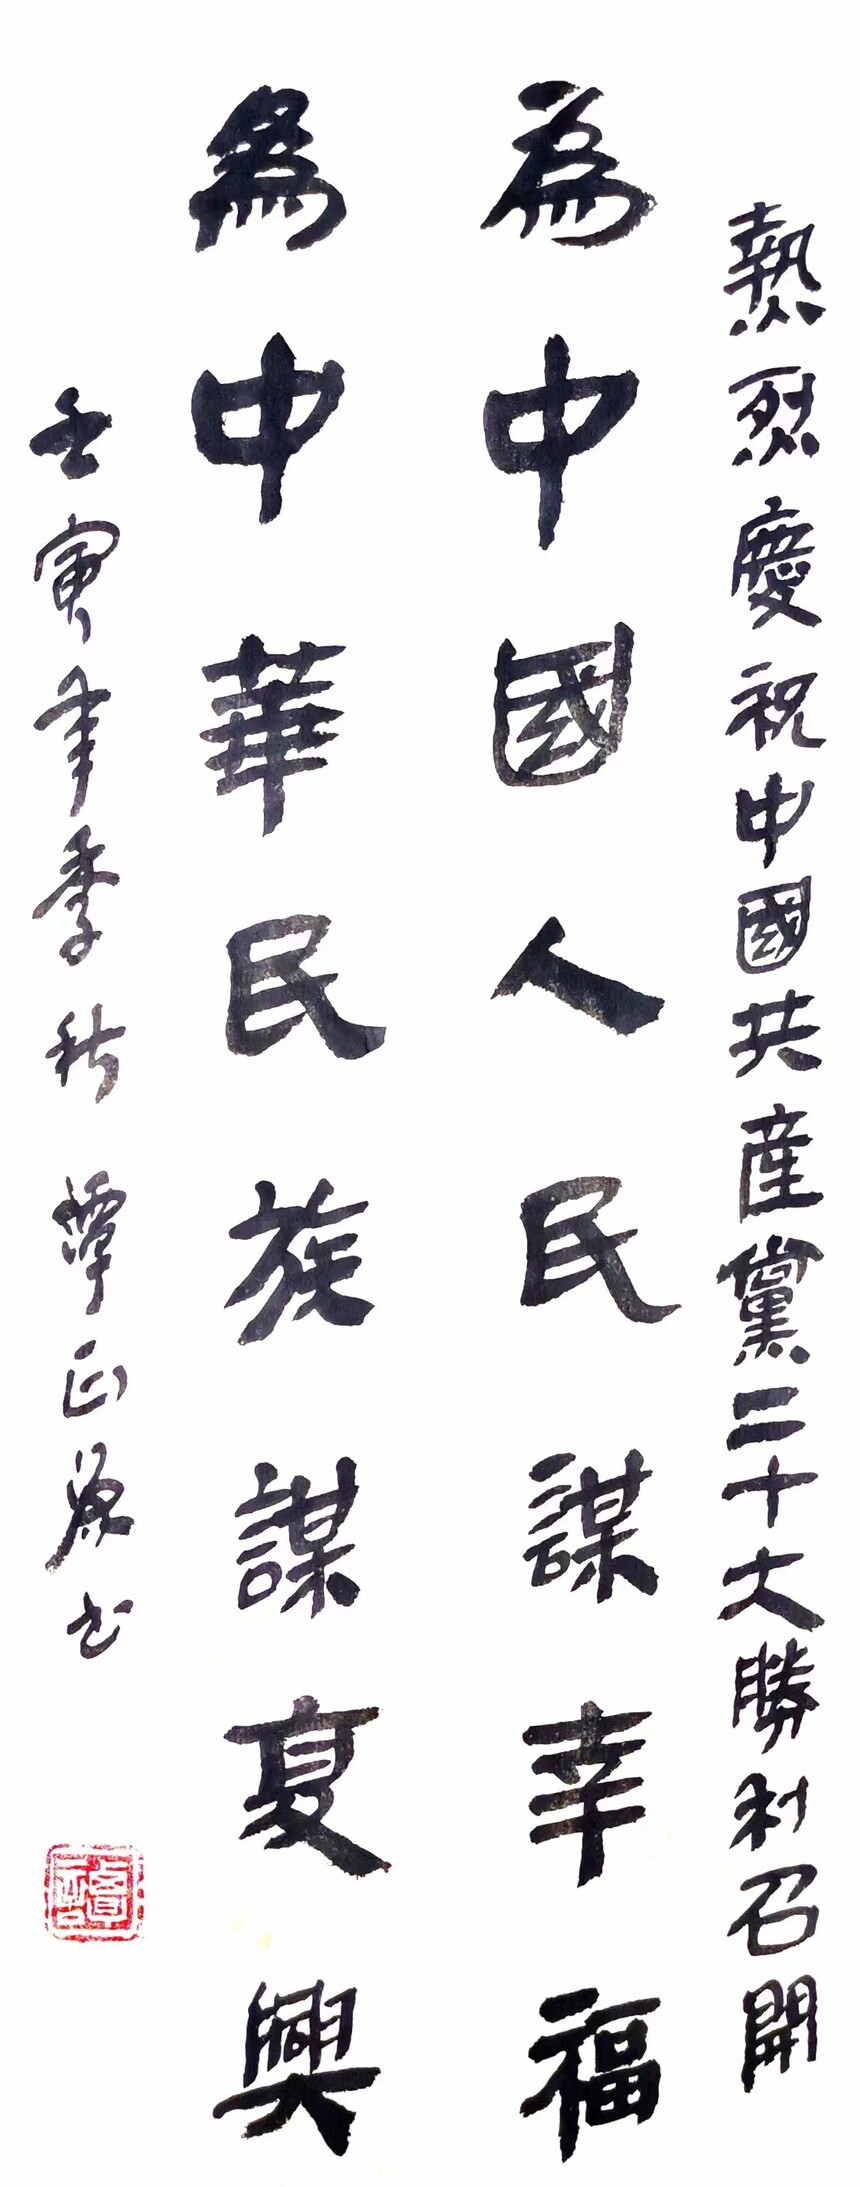 熱烈慶祝中國共產黨二十大勝利召開
為中國人民謀幸福
爲中華民族謀夏興
壬寅年季秋 譚正源书